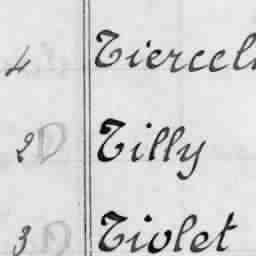 4 Tiercel
2 D Tilly
3 D Tiolet